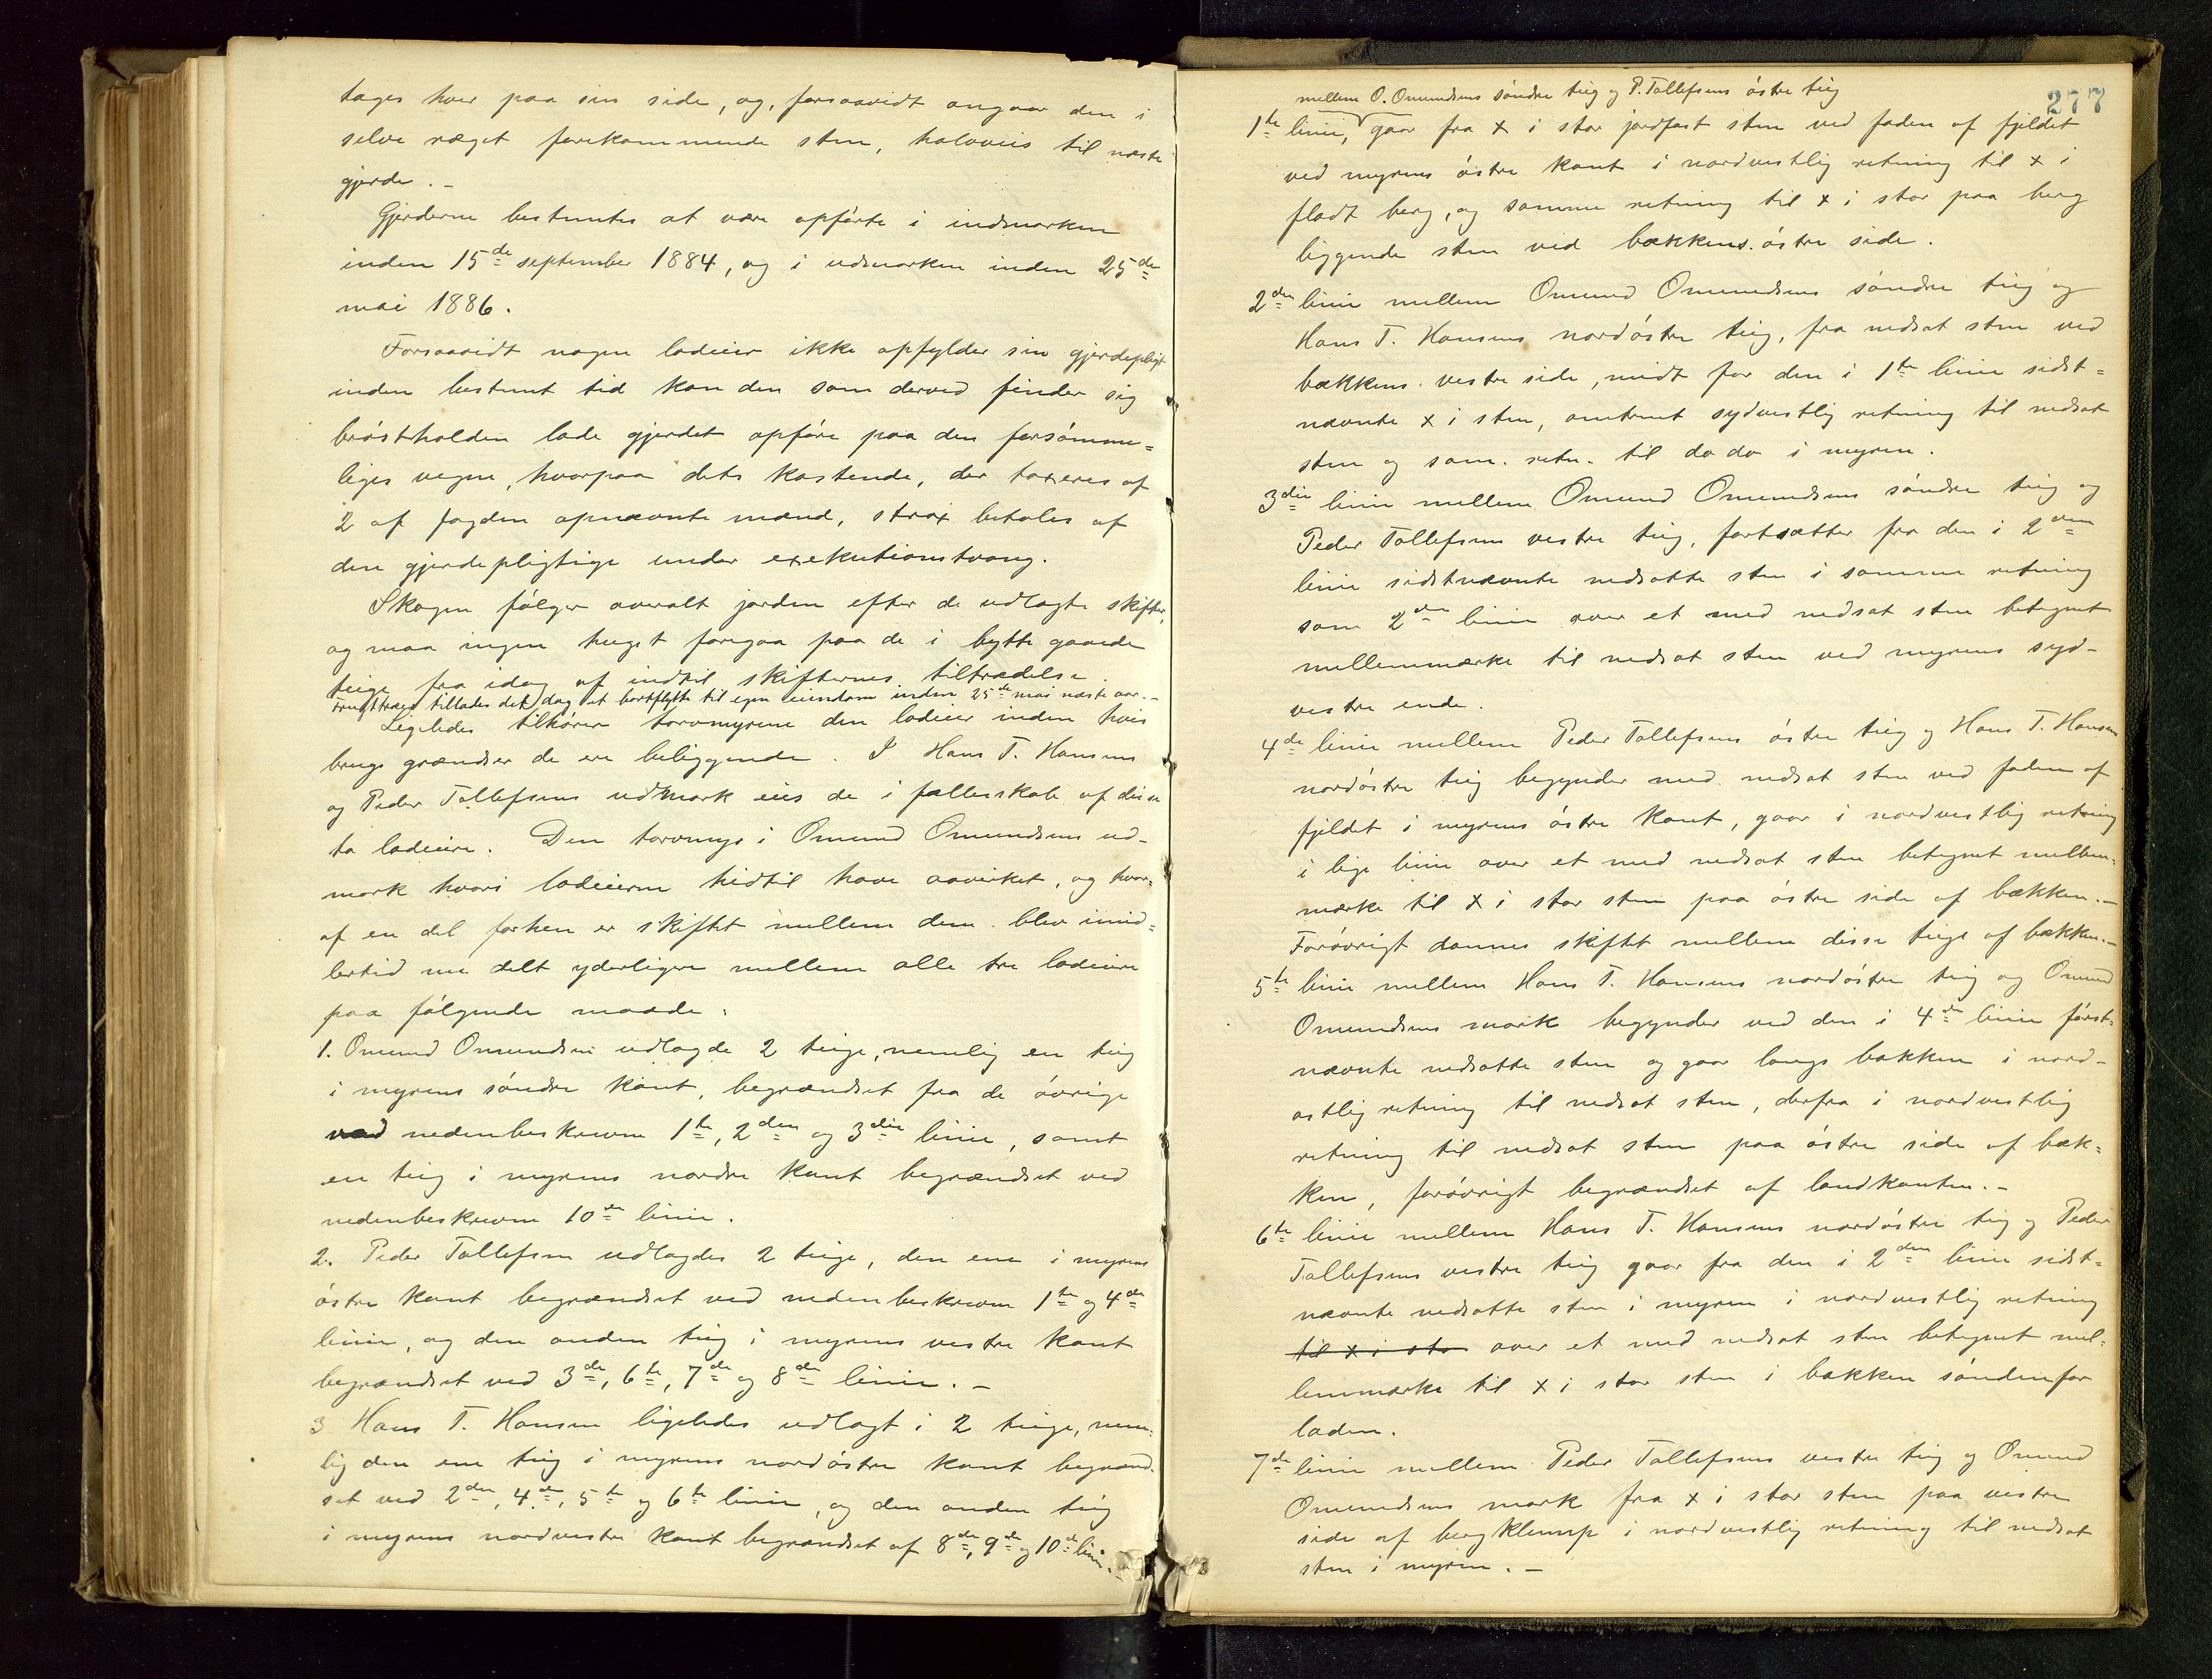 tages hver paa sin side, og, forsaavidt angaar den i
selve ræget forekommende sten, halvveis til næste
gjerde. -
Gjerderne bestemtes at være opførte i indmarken
inden 15de september 1884, og i udmarken inden 25de
mai 1886.
Forsaavidt nogen lodeier ikke opfylder sin gjerdepligt
inden bestemt tid kan den som derved finder sig
brøstholden lade gjerdet opføre paa den forsømme=
liges vegne, hvorpaa dets kostende, der taxeres af
2 af fogden opnævnte mænd, strax betales af
den gjerdepligtige under exekutionstvang.
Skogen følger overalt jorden efter de udlagte skifter,
og maa ingen hugst foregaa paa de i bytte gaaede
teige fra idag af indtil skifternes tiltrædelse.
Frugttræer tillades det dog at bortflytte til egen eiendom inden 25de mai næste aar. -
Ligeledes tilhører torvmyrene den lodeier inden hvis
brugs grændser de ere beliggende. I Hans T. Hansens
og Peder Tollefsens udmark eies de i fælleskab af disse
to lodeiere. Den torvmyr i Omund Omundsens ud-
mark hvori lodeierne hidtil have aavirket, og hvor=
af en del forhen er skiftet mellem dem blev imid=
lertid nu delt yderligere mellem alle tre lodeiere
paa følgende maade:
1. Omund Omundsen udlagde 2 teige, nemlig en teig
i myrens søndre kant, begrændset fra de øvrige
ved nedenbeskrevne 1te, 2den og 3die linie, samt
en teig i myrens nordre kant begrændset ved
nedenbeskrevne 10de linie.
2. Peder Tollefsen udlagdes 2 teige, den ene i myrens
østre kant begrændset ved nedenbeskrevne 1te og 4de
linie, og den anden teig i myrens vestre kant
begrændset ved 3de, 6te, 7de og 8de linie. -
3 Hans T. Hansen ligeledes udlagt i 2 teige, nem=
lig den ene teig i myrens nordøstre kant begrænd-
set ved 2den, 4de, 5te og 6te linie, og den anden teig
i myrens nordvestre kant begrændset af 8de, 9de og 10de linie. -
277
mellem O. Omundsens søndre teig og P. Tollefsens østre teig
1te linie, gaar fra x i stor jordfast sten ved foden af fjeldet
ved myrens østre kant i nordvestlig retning til x i
fladt berg, og samme retning til x i stor paa berg
liggende sten ved bækkens østre side.
2den linie mellem Omund Omundsens søndre teig og
Hans T. Hansens nordøstre teig, fra nedsat sten ved
bækkens vestre side, midt for den i 1te linie sidst=
nævnte x i sten, omtrent sydvestlig retning til nedsat
sten og sam. retn. til do do i myren.
3die linie mellem Omund Omundsens søndre teig og
Peder Tollefsens vestre teig, fortsætter fra den i 2den
linie sidstnævnte nedsatte sten i samme retning
som 2den linie over et med nedsat sten betegnet
mellemmærke til nedsat sten ved myrens syd-
vestre ende.
4de linie mellem Peder Tollefsens østre teig og Hans T. Hansens
nordøstre teig begynder med nedsat sten ved foden af
fjeldet i myrens østre kant, gaar i nordvestlig retning
i lige linie over et med nedsat sten betegnet mellem=
mærke til x i stor sten paa østre side af bækken. -
Forøvrigt dannes skiftet mellem disse teige af bækken. -
5te linie mellem Hans T. Hansens nordøstre teig og Omund
Omundsens mark begynder ved den i 4de linie først=
nævnte nedsatte sten og gaar langs bakken i nord-
ostlig retning til nedsat sten, derfra i nordvestlig
retning til nedsat sten paa østre side af bæk=
ken, forøvrigt begrændset af landkanten. -
6te linie mellem Hans T. Hansens nordøstre teig og Peder
Tollefsens vestre teig gaar fra den i 2den linie sidst=
nævnte nedsatte sten i myren i nordvestlig retning
til x i stor over et med nedsat sten betegnet mel=
lemmærke til x i stor sten i bakken søndenfor
laden.
7de linie mellem Peder Tollefsens vestre teig og Omund
Omundsens mark fra x i stor sten paa vestre
side af bergklump i nordvestlig retning til nedsat
sten i myren. -